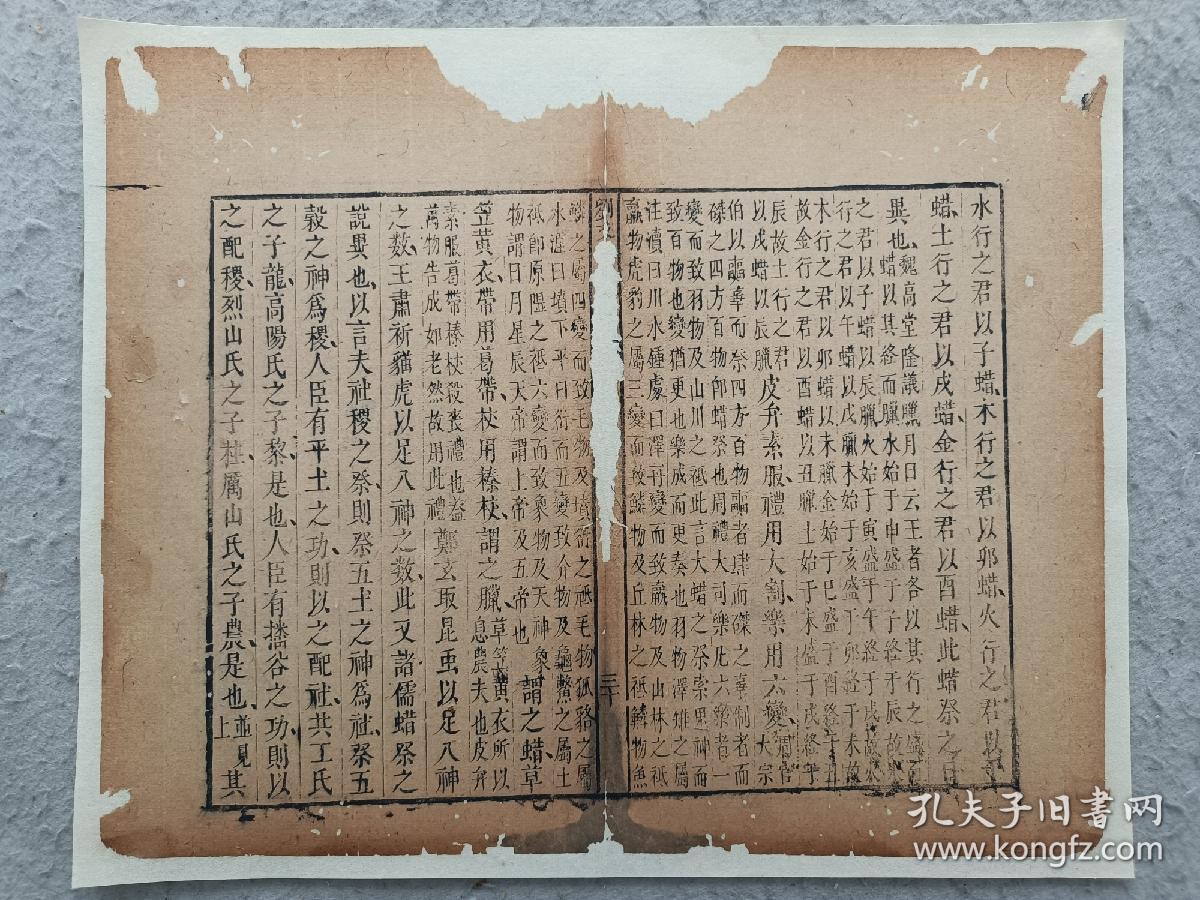 水行之君以子蜡木行之君以卯蜡火行之君以午
蜡土行之君以戌蜡金行之君以酉蜡此蜡祭之日
異也魏高堂隆議臘月日云王者各以其行之盛而
蜡以其終而臘水始于申盛于子終于辰故水行
之君以子蜡以辰臘火始于寅盛于午終于戌故火
行之君以午蜡以戌臘木始于亥盛于卯終于未故
木行之君以卯蜡以未臘金始于巳盛于酉終于丑
故金行之君以酉蜡以丑臘土始于未盛于戌終于
辰故土行之君
以戌蜡以辰臘皮弁素服禮用大割樂用六變周官
大宗
伯以疈辜而祭四方百物疈者肆而磔之辜制者而
磔之四方百物即蜡祭也周禮大司樂凡六樂者一
變而致羽物及山川之祗此言大蜡之祭索鬼神而
致百物也變猶更也樂成而更奏也羽物澤雉之屬
注瀆曰川水鍾處曰澤再變而致臝物及山林之祗
臝物虎豹之屬三變而致鱗物及丘林之祗鱗物魚
劉
三十
鱗之屬四變而致毛物及墳衍之祗毛物狐貉之屬
水涯曰墳下平曰衍而五變致介物及龜鱉之屬土
祗即原隰之祗六變而致象物及天神象
物謂日月星辰天帝謂上帝及五帝也謂之蜡草
笠黃衣帶用葛帶杖用榛杖謂之臘草笠黃衣所以
息農夫也皮弁
素服葛帶榛杖殺喪禮也蓋
萬物告成如老然故用此禮鄭玄取昆虫以足八神
之數王肅祈貓虎以足八神之數此又諸儒蜡祭之
說異也以言夫社稷之祭則祭五土之神爲社祭五
穀之神爲稷人臣有平土之功則以之配社共工氏
之子龍高陽氏之子黎是也人臣有播谷之功則以
之配稷烈山氏之子柱厲山氏之子農是也並見上其
孔夫子旧书网
www.kongfz.com